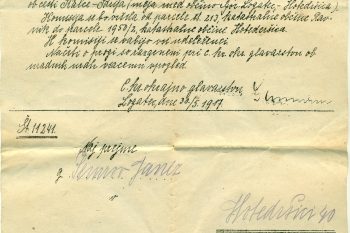 ob cesti Kalce - Idrija (meja med občino Log Logatec, Hotedršica)
Komisija se bo vršila od parcele št. 213, katastralne občine Rav-
nik do parcele 1950/2, katastralne občine Hotedršica.
K komisiji se vabijo vsi udeleženci.
Načrti o progi so razgrnjeni pri c. kr. glavarstvu ob
uradnih urah vsacemu vpogled.
C. kr. okrajno glavarstvo,
Logatec, dne 20/5. 1901.
Št. 11241.
Naj prejme
g. Janez
v
Hotedršici 40